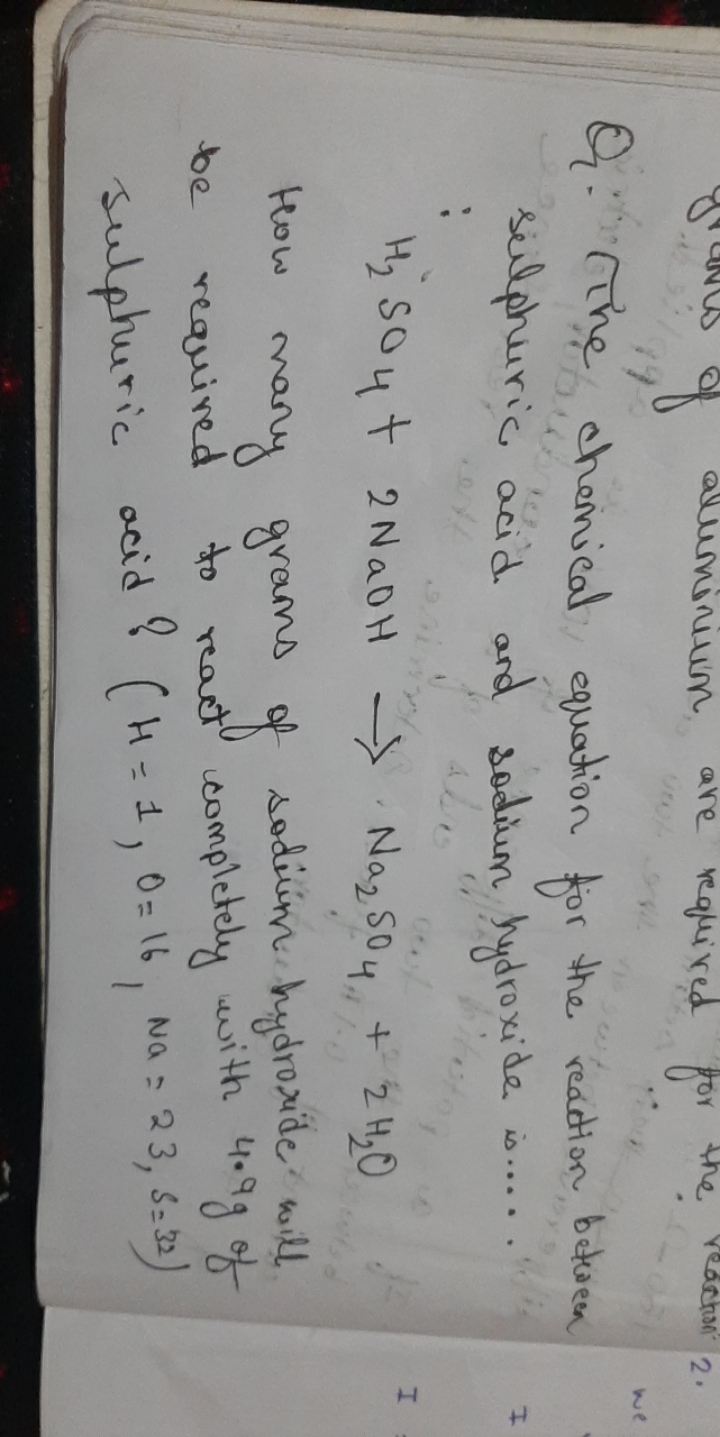 grams of aluminium are required for the reaction
Q. The chemical equation for the reaction between
sulphuric acid and sodium hydroxide is.....
:
H₂SO₄ + 2NaOH → Na₂SO₄ + 2H₂O
How many grams of sodium hydroxide will
be required to react completely with 4.9g of
sulphuric acid? (H=1, O=16, Na=23, S=32)
2.
we
I
I